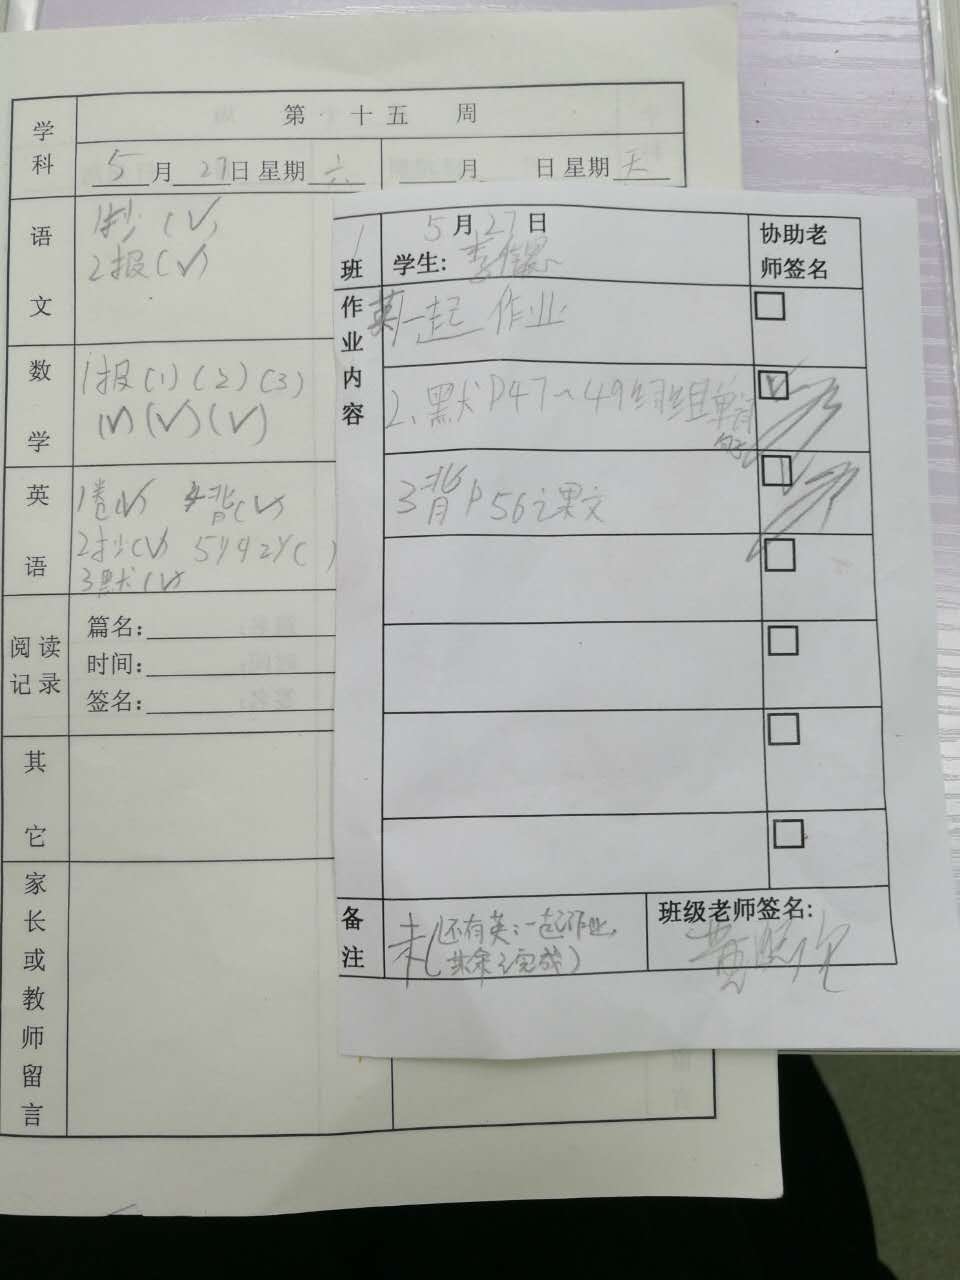 学科
第 十 五 周
5月27日 星期六
月 日 星期天
语文
1抄(√)
2报(√)
数学
1报(1)(2)(3)
(√)(√)(√)
英语
1卷(√) 4背(√)
2抄(√) 5
3默(√)
阅读记录
篇名:
时间:
签名:
其它
家长或教师留言
1班
5月27日
学生: 李
协助老师签名
作业内容
英一起作业
2、默P47~49 单词
3背P56课文
备注
未(还有英:一起作业,
其余已完成)
班级老师签名:
黄